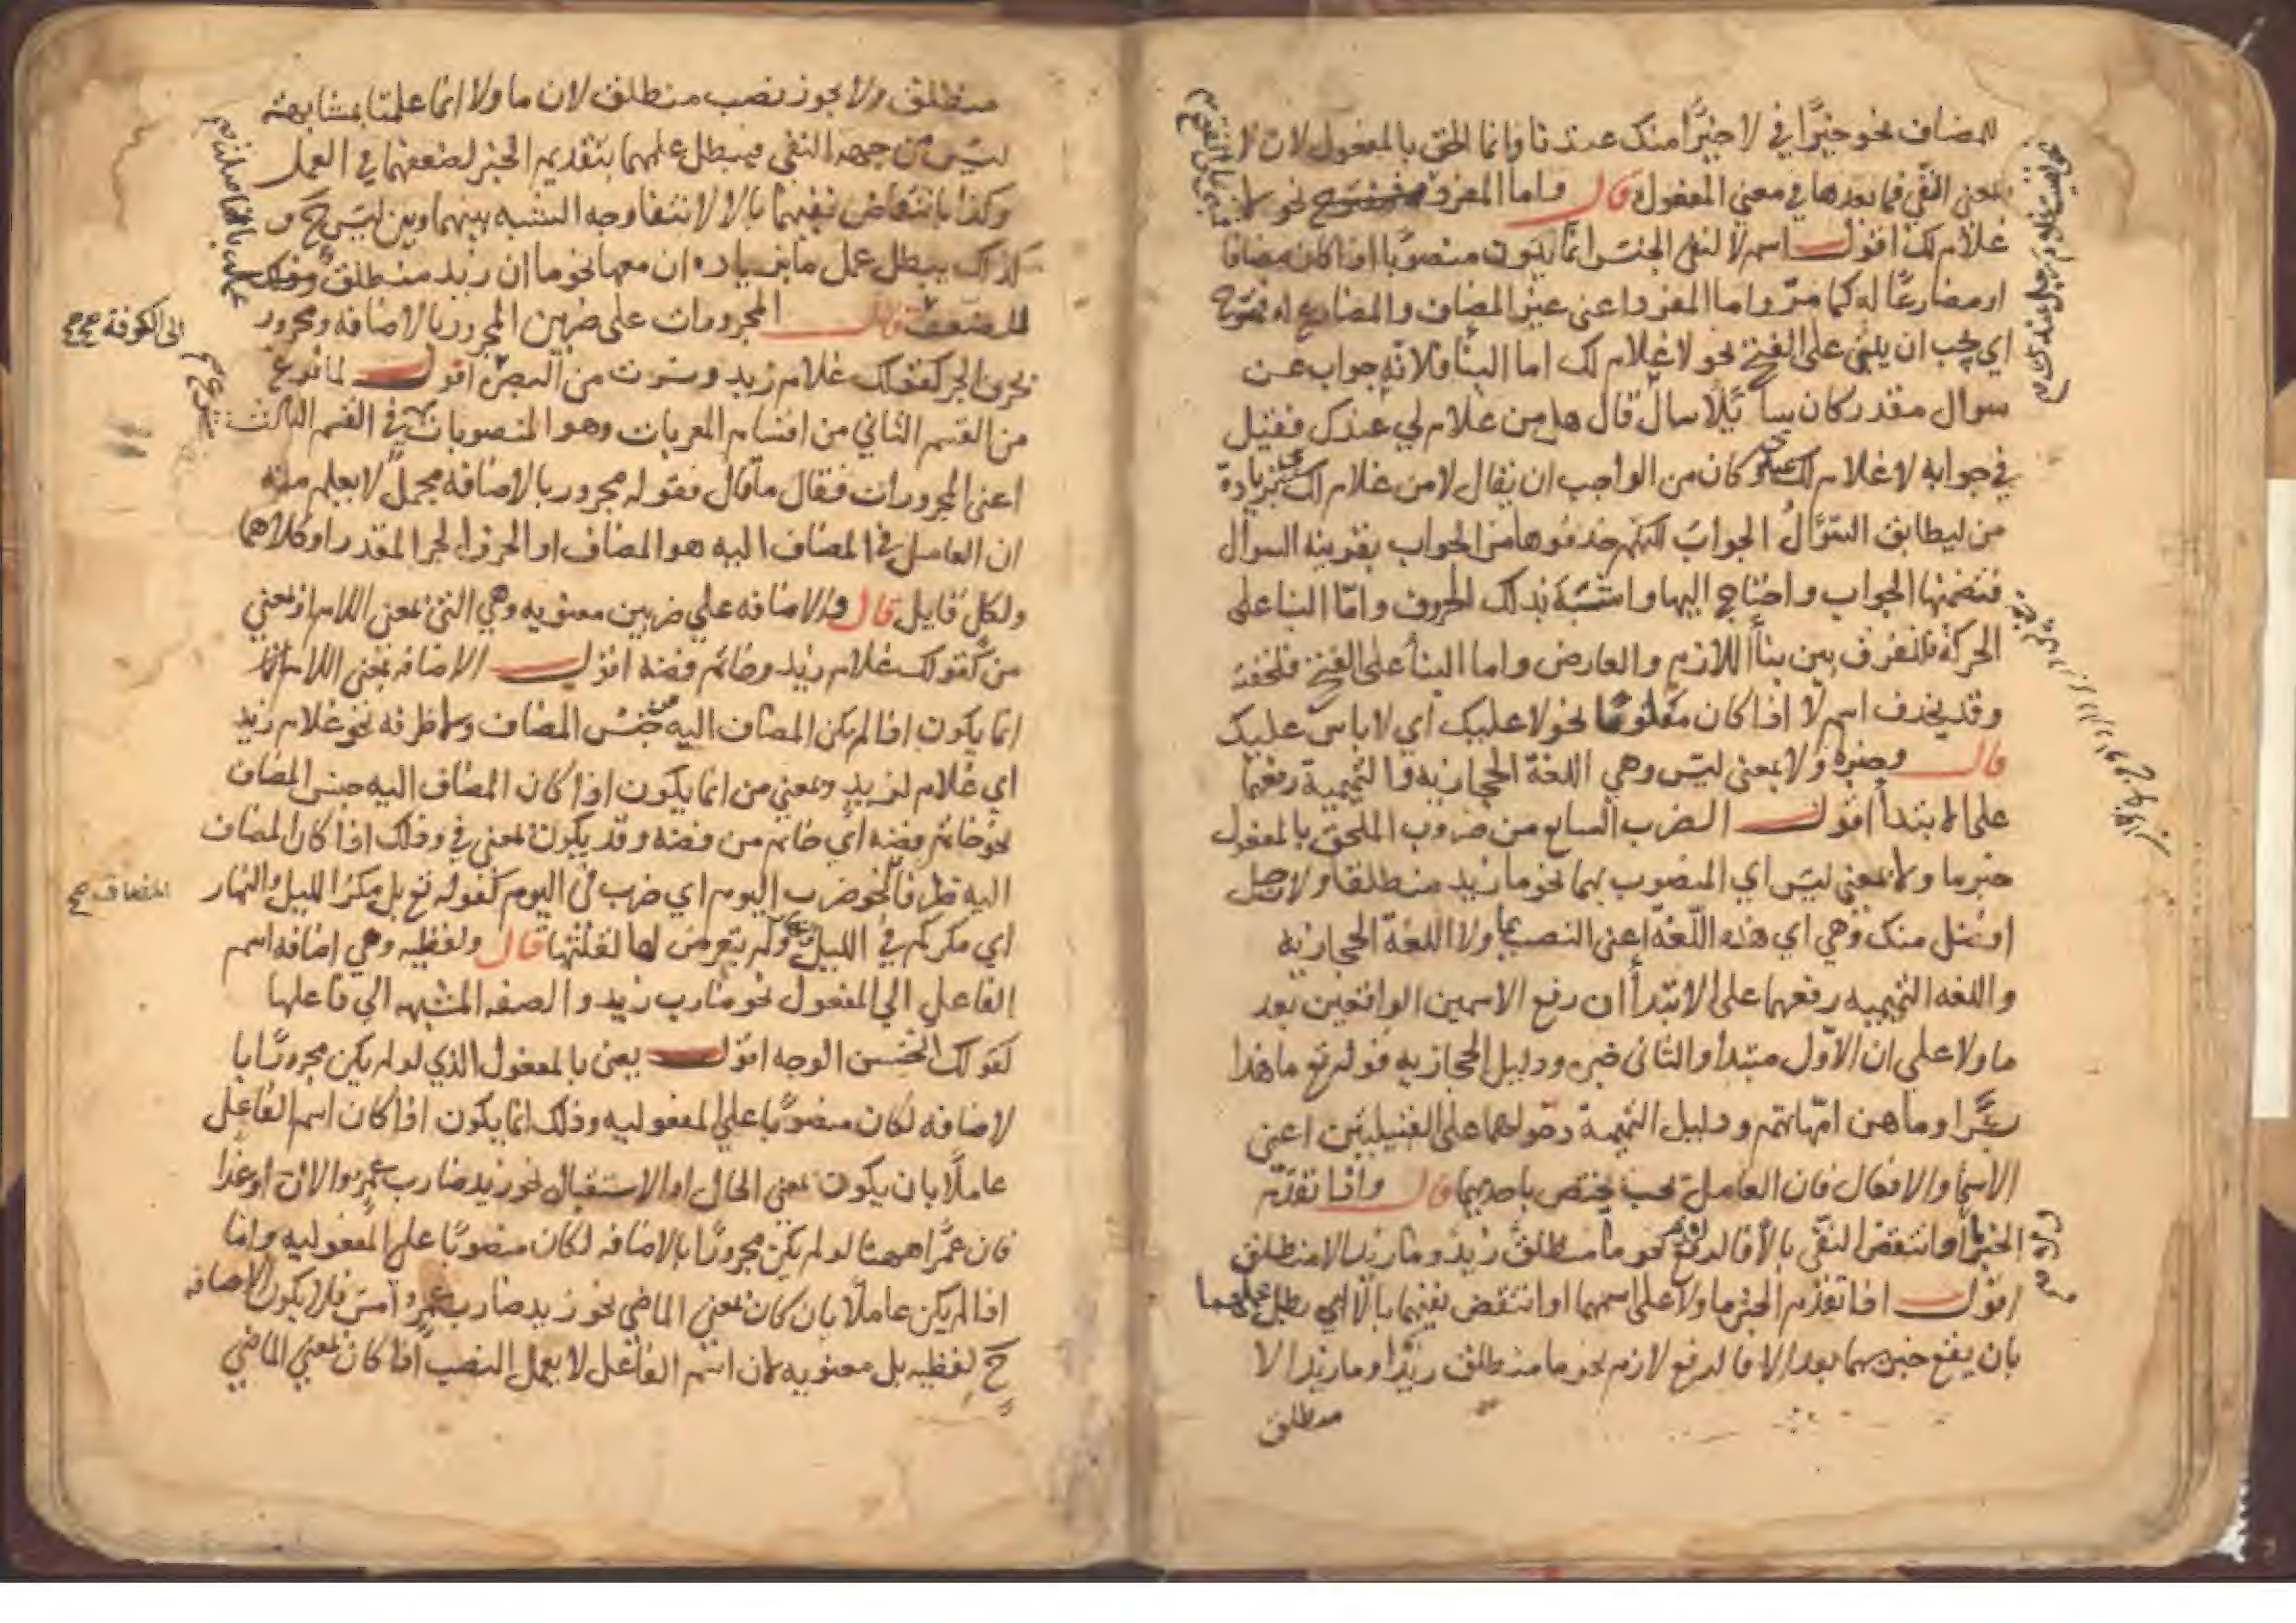 للمضاف نحو خيرًا في لا خيرًا منك عندنا وانما الحق بالمفعول لان لا
بمعنى النفي فما بعدها في معنى المفعول قال واما المفرد فمفتوح نحو لا
غلام لك اقول اسم لا لنفي الجنس انما يكون منصوبًا اذا كان مضافا
او مضارعًا له كما مرّ واما المفرد اعنى غير المضاف والمضارع له فمفتوح
اي يجب ان يبنى على الفتح نحو لا غلام لك اما البنأ فلانه جواب عن
سوال مقدر كان سائلًا سال قال هل من غلام لي عندك فقيل
في جوابه لا غلام لك وكان من الواجب ان يقال لا من غلام لك بزيادة
من ليطابق السؤال الجواب لكنهم حذفوها من الجواب بقرينه السوال
فتضمنها الجواب واحتاج اليها واشبه بذلك الحروف وامّا البنا على
الحركة فللفرق بين بنأ اللازم والعارض واما البنأ على الفتح فلخفته
وقد يحذف اسم لا اذا كان معلومًا نحو لا عليك اي لا باس عليك
قال وخبر ما ولا بمعنى ليس وهي اللغة الحجازيه والتميمية رفعهما
على الابتدأ اقول الضرب السابع من ضروب الملحق بالمفعول
خبر ما ولا بمعنى ليس اي المنصوب بهما نحو ما زيد منطلقا ولا رجل
افضل منك وهي اي هذه اللّغة اعنى النصب بما ولا اللغة الحجازيه
واللغه التميميه رفعهما على الابتدأ ان رفع الاسمين الواقعين بعد
ما ولا على ان الاوّل مبتدأ والثانى خبره ودليل الحجازيه قوله تع ما هذا
بشرًا وما هن امّهاتهم ودليل التميمة دخولهما على القبيلتين اعنى
الاسما والافعال فان العامل يجب يختص باحديهما قال واذا تقدّم
الخبر او انتقض النفي بالّا فالرفع نحو ما منطلق زيد وما زيد الا منطلق
اقول اذا تقدّم الخبر ما ولا على اسمهما او انتقض نفيهما بالّا اي بطل عملهما
بان يقع خبرهما بعد الا فالرفع لازم نحو ما منطلق زيد وما زيد الا
منطلق
منطلق ولا يجوز نصب منطلق لان ما ولا انما عملتا بمشابهة
ليس من جهه النفى فيبطل عملهما بتقديم الخبر لضعفهما في العمل
وكذا بانتقاض نفيهما بالا لانتفا وجه الشبه بينهما وبين ليس ح و
كذلك يبطل عمل ما بزياده ان معها نحو ما ان زيد منطلق وذلك
للضعف قال المجرورات على ضربين المجرور بالاضافه ومجرور
بحرف الجر كقولك غلام زيد وسرت من البصره اقول لما فرغ
الى الكوفة صح
من القسم الثاني من اقسام المعربات وهو المنصوبات في القسم الثالث
اعنى المجرورات فقال ما قال فقوله مجرور بالاضافه مجمل لا يعلم منه
ان العامل في المضاف اليه هو المضاف او الحرف الجر المقدر او كلاهما
ولكل قايل قال والاضافه علي ضربين معنويه وهي التى بمعنى اللام او بمعنى
من كقولك غلام زيد وخاتم فضه اقول الاضافه بمعنى اللام انما
انما يكون اذا لم يكن المضاف اليه جنس المضاف ولا ظرفه نحو غلام زيد
اي غلام لزيد وبمعنى من انما يكون اذا كان المضاف اليه جنس المضاف
نحو خاتم فضه اي خاتم من فضه وقد يكون بمعنى في وذلك اذا كان المضاف
اليه ظرفا نحو ضرب اليوم اي ضرب فى اليوم كقوله تع بل مكر الليل والنهار
اي مكركم في الليل ولم يتعرض لها لقلتها قال ولفظيه وهي اضافه اسم
الفاعل الي المفعول نحو ضارب زيد والصفه المشبهه الى فاعلها
كقولك الحسن الوجه اقول يعنى بالمفعول الذي لو لم يكن مجرورًا با
لاضافه لكان منصوبًا على المفعوليه وذلك انما يكون اذا كان اسم الفاعل
عاملًا بان يكون بمعنى الحال او الاستقبال نحو زيد ضارب عمرو الان او غدًا
فان عمرًا ههنا لو لم يكن مجرورًا بالاضافه لكان منصوبًا على المفعوليه واما
اذا لم يكن عاملًا بان كان بمعنى الماضي نحو زيد ضارب عمرو امس فلا يكون الاضافه
ح لفظيه بل معنويه لان اسم الفاعل لا يعمل النصب اذا كان بمعنى الماضي